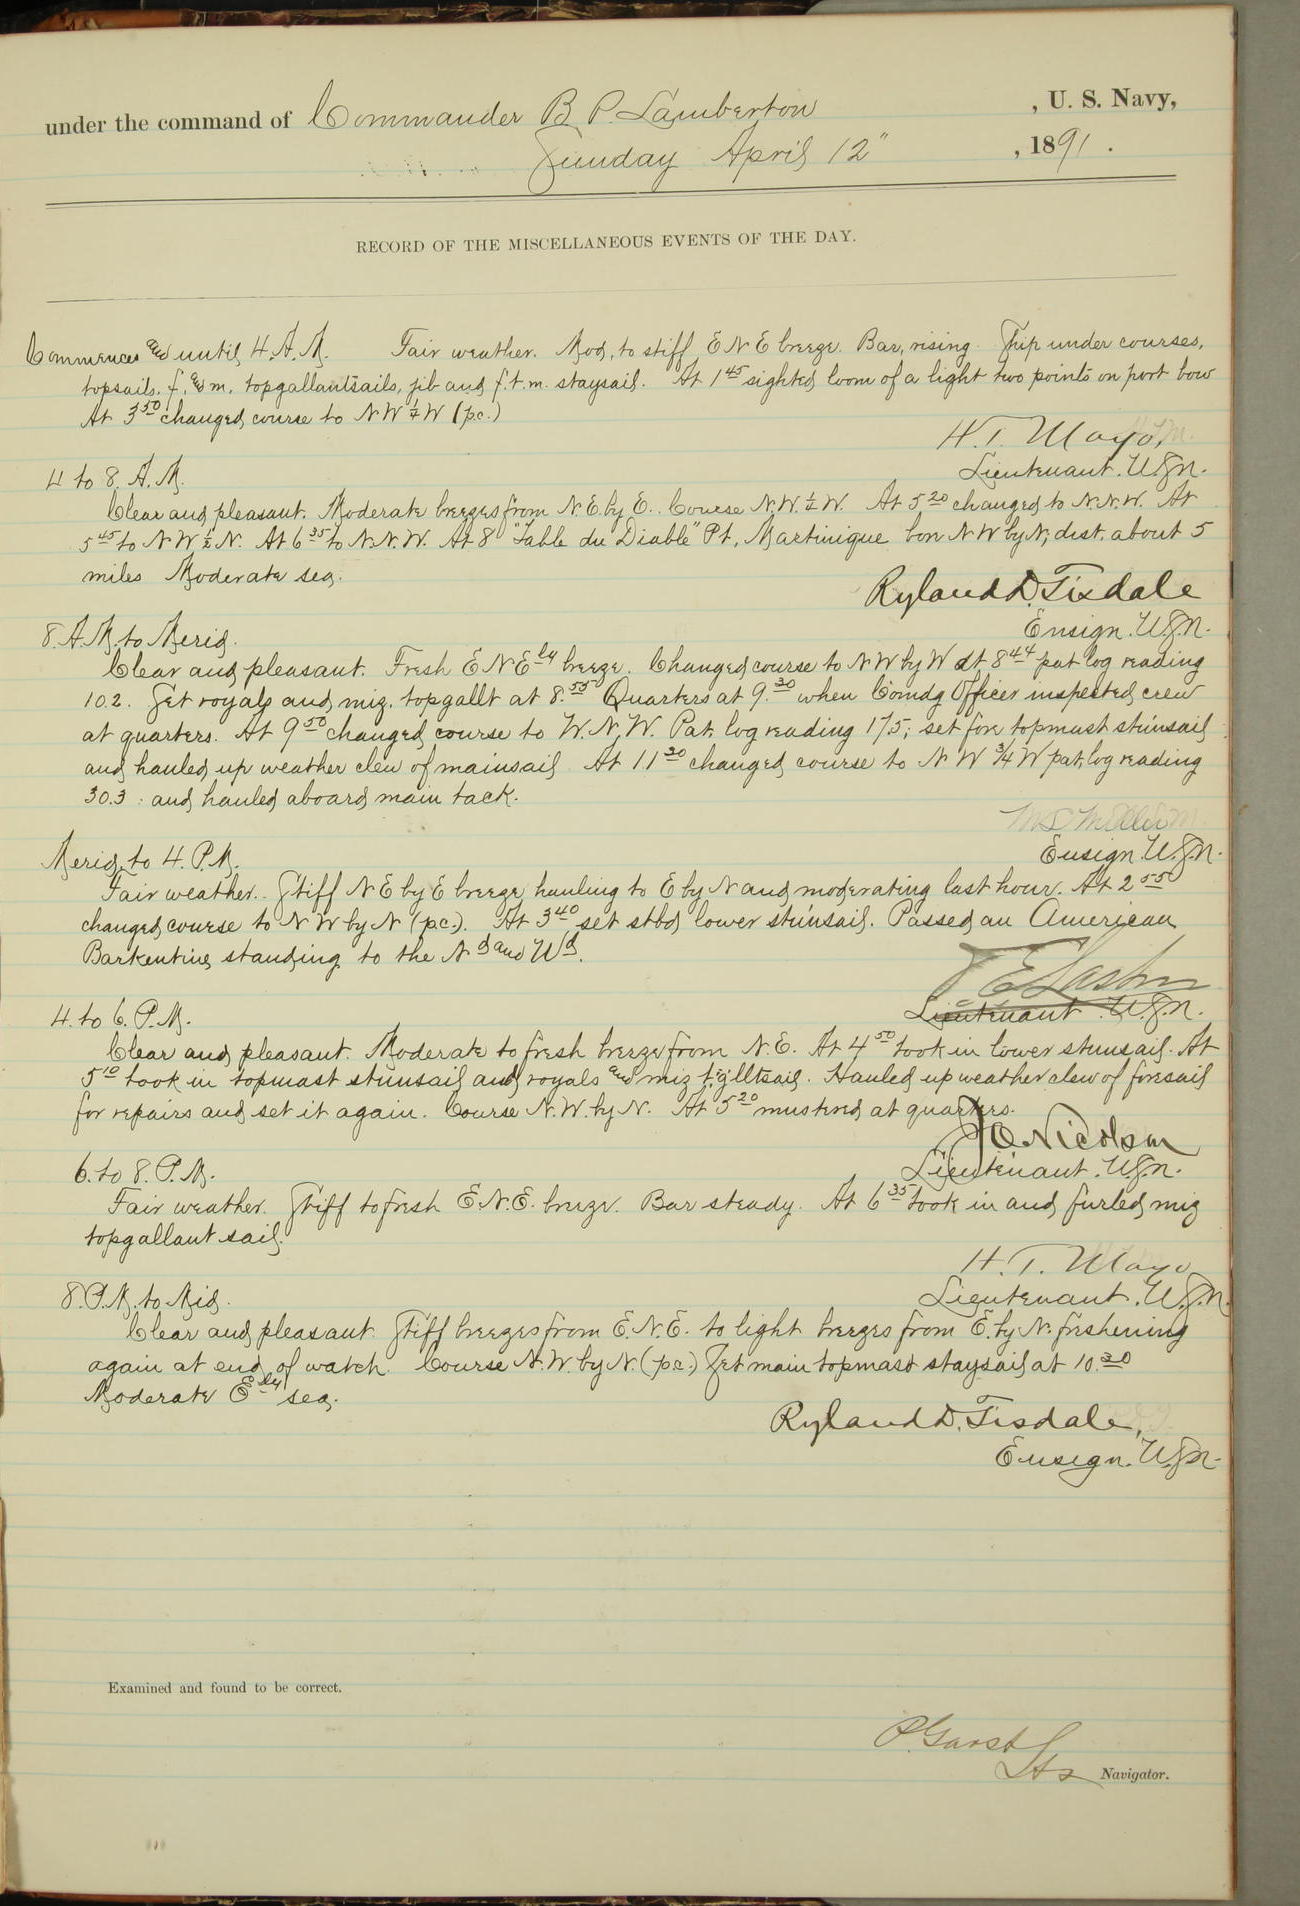 under the command of Commander B. P. Lamberton , U. S. Navy,
Sunday April 12" , 1891 .
RECORD OF THE MISCELLANEOUS EVENTS OF THE DAY.
Commences and until 4. A. M. Fair weather. Mod, to stiff E N E breeze. Bar, rising. Ship under courses,
topsails, f. & m. topgallantsails, jib and f. t. m. staysail. At 1 45 sighted loom of a light two points on port bow
At 3 50 changed course to N W ½ W (p.c.)
H. T. Mayo,
Lieutenant. U.S.N.
4 to 8. A. M.
Clear and pleasant. Moderate breezes from N.E. by E. Course N.W. ½ W. At 5 20 changed to N.N.W. At
5 45 to N W ½ N. At 6 35 to N.N.W. At 8 "Table du Diable" Pt, Martinique bore N W by N, dist. about 5
miles Moderate sea.
Ryland D. Tisdale
Ensign. U.S.N.
8. A. M. to Merid.
Clear and pleasant. Fresh E N E ly breeze. Changed course to N W by W at 8 44 pat log reading
10.2. Set royals and miz. topgallt at 8. 55 Quarters at 9. 30 when Comdg Officer inspected crew
at quarters. At 9 50 changed course to W. N. W. Pat. log reading 17.5; set fore topmast stu'nsail
and hauled up weather clew of mainsail At 11 30 changed course to N W ¾ W pat. log reading
30.3 : and hauled aboard main tack.
Ensign U.S.N.
Merid. to 4. P. M.
Fair weather. Stiff N E by E breeze, hauling to E by N and moderating last hour. At 2 55
changed course to N W by N (p.c.). At 3 40 set stbd lower stu'nsail. Passed an American
Barkentine standing to the N d and W d.
Lieutenant U.S.N.
4. to 6. P. M.
Clear and pleasant. Moderate to fresh breeze from N.E. At 4 50 took in lower stunsail. At
5 10 took in topmast stunsail and royals and miz t'g'lltsail. Hauled up weather clew of foresail
for repairs and set it again. Course N.W. by N. At 5 20 mustered at quarters.
J O Nicolson
Lieutenant. U.S.N.
6. to 8. P. M.
Fair weather. Stiff to fresh E.N.E. breeze. Bar steady. At 6 35 took in and furled miz
topgallant sail.
H. T. Mayo
Lieutenant. U.S.N.
8. P. M. to Mid.
Clear and pleasant. Stiff breezes from E.N.E. to light breezes from E. by N. freshening
again at end of watch. Course N.W. by N. (p.c.) Set main topmast staysail at 10. 30
Moderate E ly sea.
Ryland D. Tisdale,
Ensign. U.S.N.
Examined and found to be correct.
P. Garst
Lt Navigator.